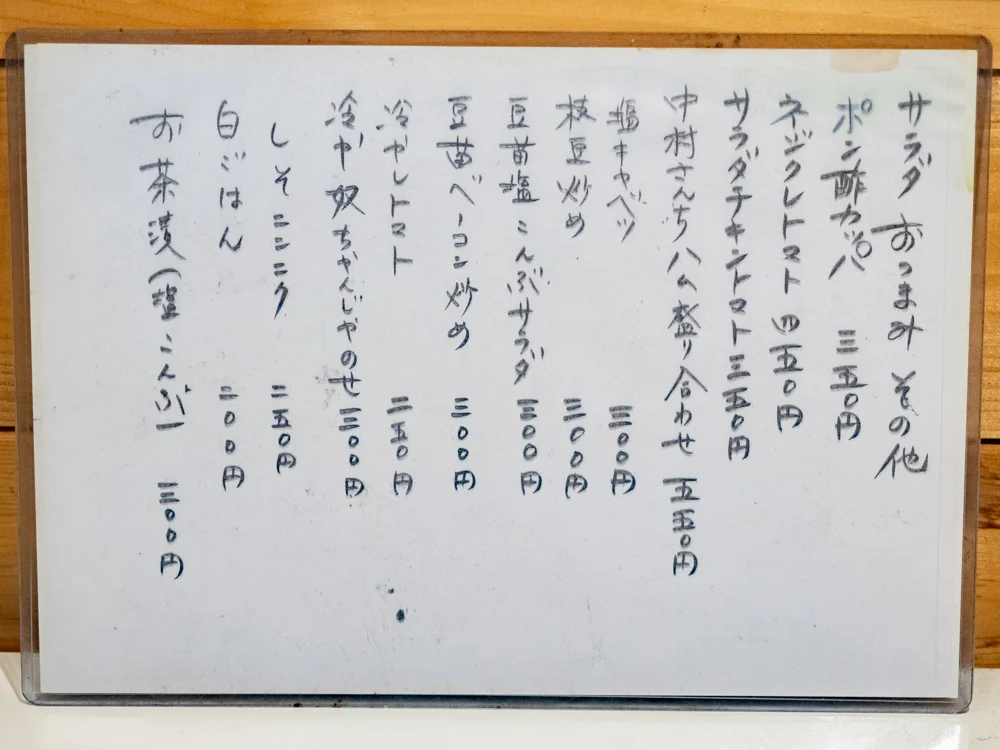 サラダ おつまみ その他
ポン酢カッパ 三五〇円
ネジクレトマト 四五〇円
サラダチキントマト 三五〇円
中村さんち ハム盛り合わせ 五五〇円
塩キャベツ 三〇〇円
枝豆炒め 三〇〇円
豆苗塩こんぶサラダ 三〇〇円
豆苗ベーコン炒め 三〇〇円
冷やしトマト 二五〇円
冷や奴ちりめんじゃこのせ 三〇〇円
しそニンニク 二五〇円
白ごはん 二〇〇円
お茶漬(塩こんぶ) 三〇〇円